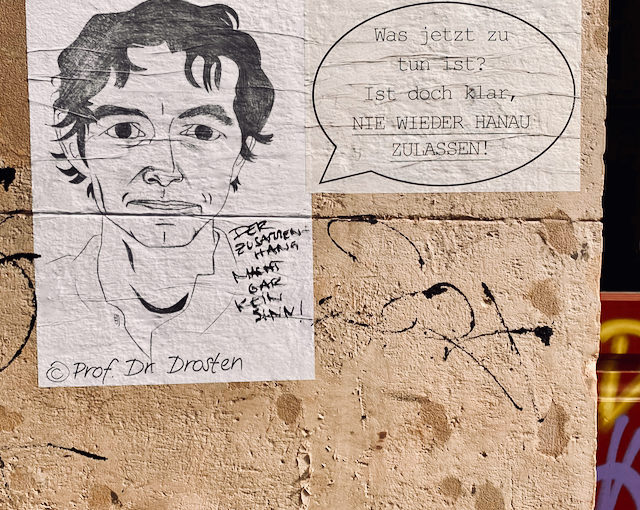 Was jetzt zu
tun ist?
Ist doch klar,
NIE WIEDER HANAU
ZULASSEN!
DER
ZUSAMMEN-
HANG
MACHT
GAR
KEIN
SINN!
© Prof Dr Drosten